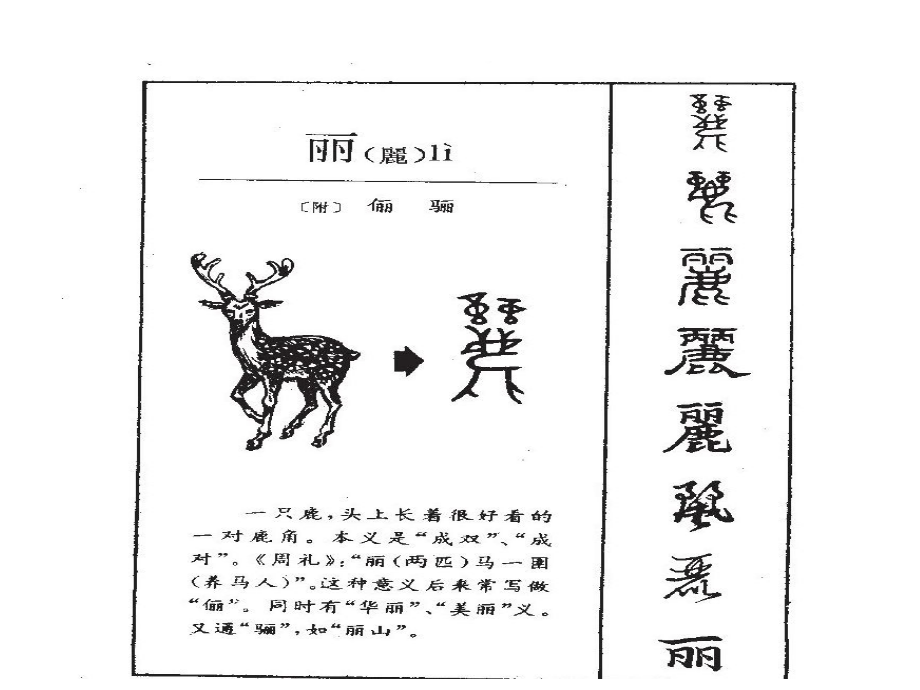 丽(麗)lì
〔附〕 俪 骊
一只鹿,头上长着很好看的
一对鹿角。本义是“成双”、“成
对”。《周礼》:“丽(两匹)马一圉
(养马人)”。这种意义后来常写做
“俪”。同时有“华丽”、“美丽”义。
又通“骊”,如“丽山”。
麗
麗
麗
丽